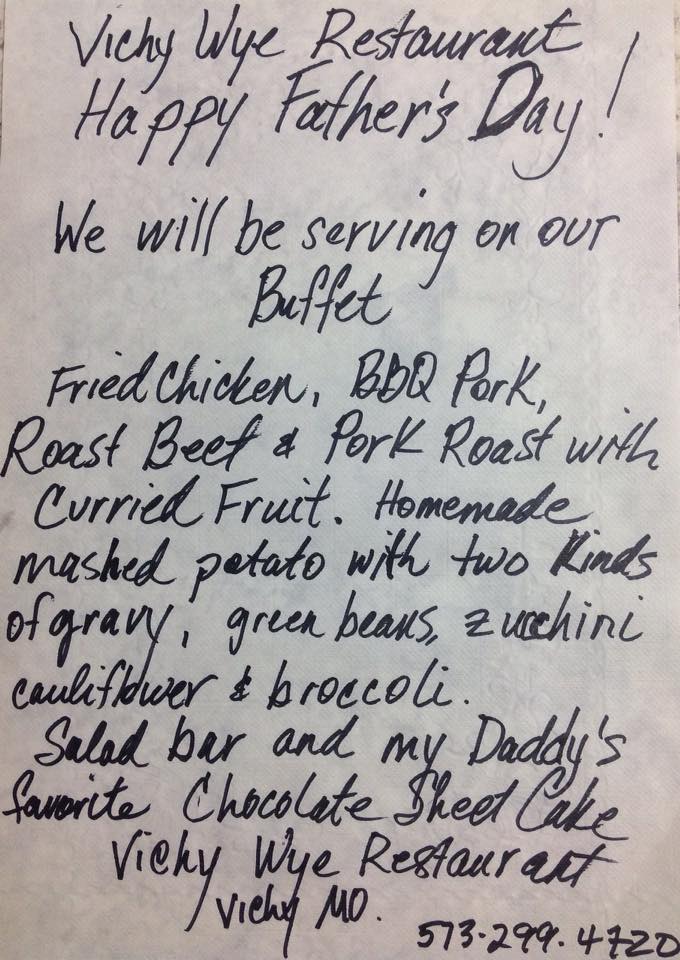 Vichy Wye Restaurant
Happy Father's Day!
We will be serving on our
Buffet
Fried Chicken, BBQ Pork,
Roast Beef & Pork Roast with
Curried Fruit. Homemade
mashed potato with two kinds
of gravy, green beans, zucchini
cauliflower & broccoli.
Salad bar and my Daddy's
favorite Chocolate Sheet Cake
Vichy Wye Restaurant
Vichy MO.
573-299-4720